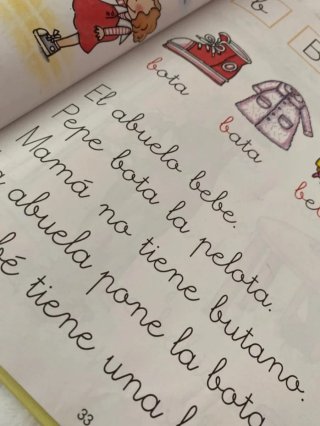 b
B
bota
bata
El abuelo bebe.
Pepe bota la pelota.
Mamá no tiene butano.
abuela pone la bota
tiene una
33